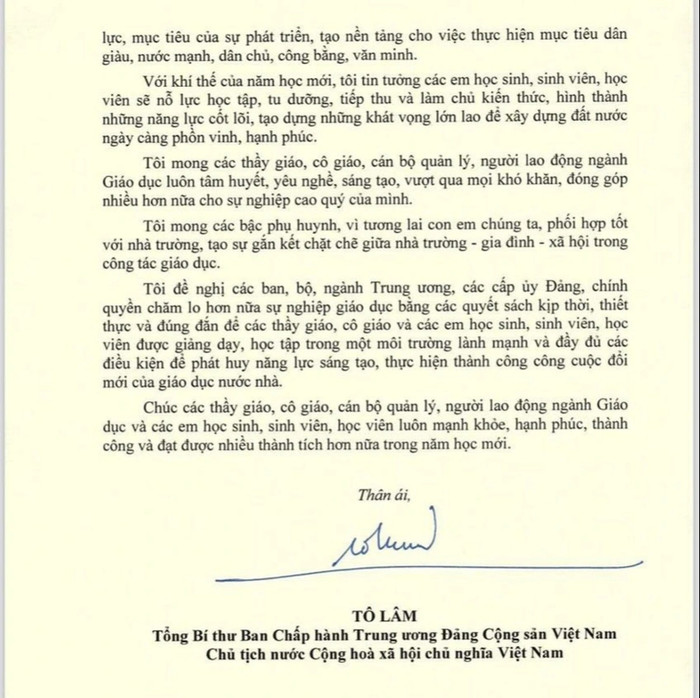 lực, mục tiêu của sự phát triển, tạo nền tảng cho việc thực hiện mục tiêu dân
giàu, nước mạnh, dân chủ, công bằng, văn minh.
Với khí thế của năm học mới, tôi tin tưởng các em học sinh, sinh viên, học
viên sẽ nỗ lực học tập, tu dưỡng, tiếp thu và làm chủ kiến thức, hình thành
những năng lực cốt lõi, tạo dựng những khát vọng lớn lao để xây dựng đất nước
ngày càng phồn vinh, hạnh phúc.
Tôi mong các thầy giáo, cô giáo, cán bộ quản lý, người lao động ngành
Giáo dục luôn tâm huyết, yêu nghề, sáng tạo, vượt qua mọi khó khăn, đóng góp
nhiều hơn nữa cho sự nghiệp cao quý của mình.
Tôi mong các bậc phụ huynh, vì tương lai con em chúng ta, phối hợp tốt
với nhà trường, tạo sự gắn kết chặt chẽ giữa nhà trường - gia đình - xã hội trong
công tác giáo dục.
Tôi đề nghị các ban, bộ, ngành Trung ương, các cấp ủy Đảng, chính
quyền chăm lo hơn nữa sự nghiệp giáo dục bằng các quyết sách kịp thời, thiết
thực và đúng đắn để các thầy giáo, cô giáo và các em học sinh, sinh viên, học
viên được giảng dạy, học tập trong một môi trường lành mạnh và đầy đủ các
điều kiện để phát huy năng lực sáng tạo, thực hiện thành công công cuộc đổi
mới của giáo dục nước nhà.
Chúc các thầy giáo, cô giáo, cán bộ quản lý, người lao động ngành Giáo
dục và các em học sinh, sinh viên, học viên luôn mạnh khỏe, hạnh phúc, thành
công và đạt được nhiều thành tích hơn nữa trong năm học mới.
Thân ái,
TÔ LÂM
Tổng Bí thư Ban Chấp hành Trung ương Đảng Cộng sản Việt Nam
Chủ tịch nước Cộng hoà xã hội chủ nghĩa Việt Nam